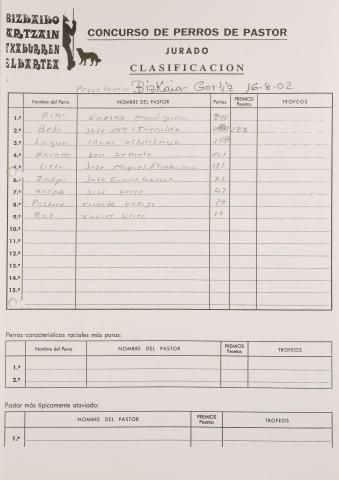 BIZKAIKO
ARTZAIN
TXAKURREN
ELKARTEA
CONCURSO DE PERROS DE PASTOR
JURADO
CLASIFICACION
Bizkaia- Gorliz 16-8-02
Nombre del Perro NOMBRE DEL PASTOR Puntos PREMIOS Pesetas TROFEOS
1.º Enrike Mendiguren
2.º Beti Jose Mª Iturralde 268
3.º Lagun
4.º Navarra Jon
5.º Jose Miguel Etxebarria 127
6.º Zaspi Jose Ramon Garcia
7.º Xarpa Jose 42
8.º Pastora Vicente 28
9.º Bat Xavier 19
10.º
11.º
12.º
13.º
14.º
15.º
Perros características raciales más puras:
Nombre del Perro NOMBRE DEL PASTOR PREMIOS Pesetas TROFEOS
1.º
2.º
Pastor más típicamente ataviado:
NOMBRE DEL PASTOR PREMIOS Pesetas TROFEOS
1.º